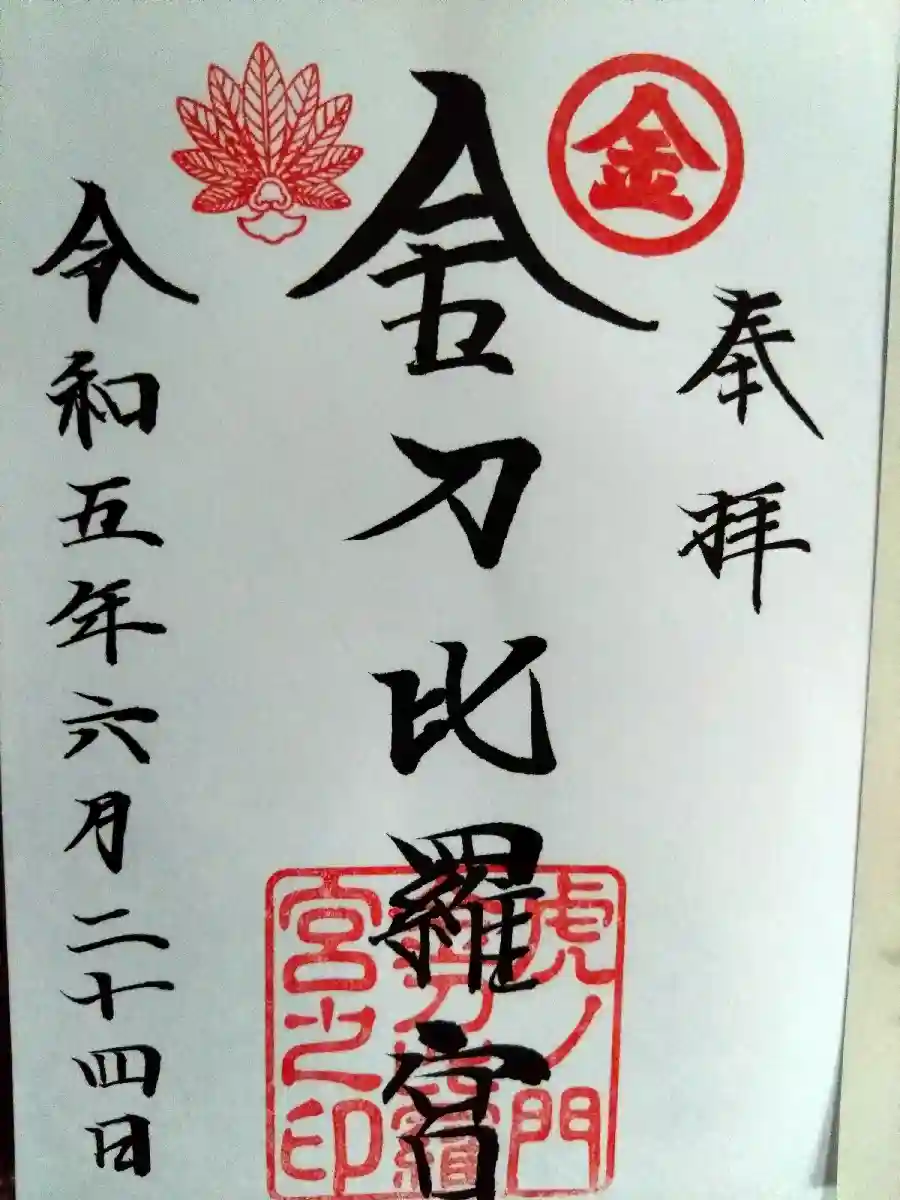 金
奉拝
金刀比羅宮
虎ノ門
金刀比羅
宮之印
令和五年六月二十四日